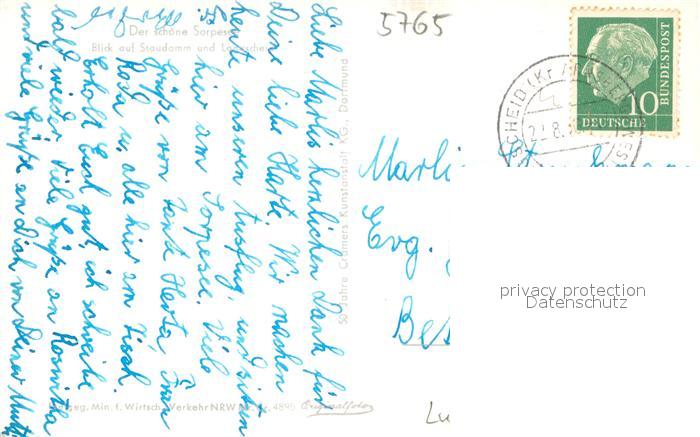 5765
Der schöne Sorpesee
Blick auf Staudamm und Langscheid
Liebe Marlis herzlichen Dank für
Deine liebe Karte. Wir machen
heute unseren Ausflug, und sitzen
hier am Sorpesee. Viele
Grüße von Tante Herta, Frau
Koch u. alle hier am Tisch.
Erholt Euch gut, ich schreibe
bald wieder. Viele Grüße an Roswitha
und viele Grüße an dich von Deiner Mutti
50 Jahre Cramers Kunstanstalt KG., Dortmund
Min. f. Wirtsch. Verkehr NRW
4895 Originalfoto
10
DEUTSCHE
BUNDESPOST
SCHEID (Kr
Evg.
privacy protection
Datenschutz